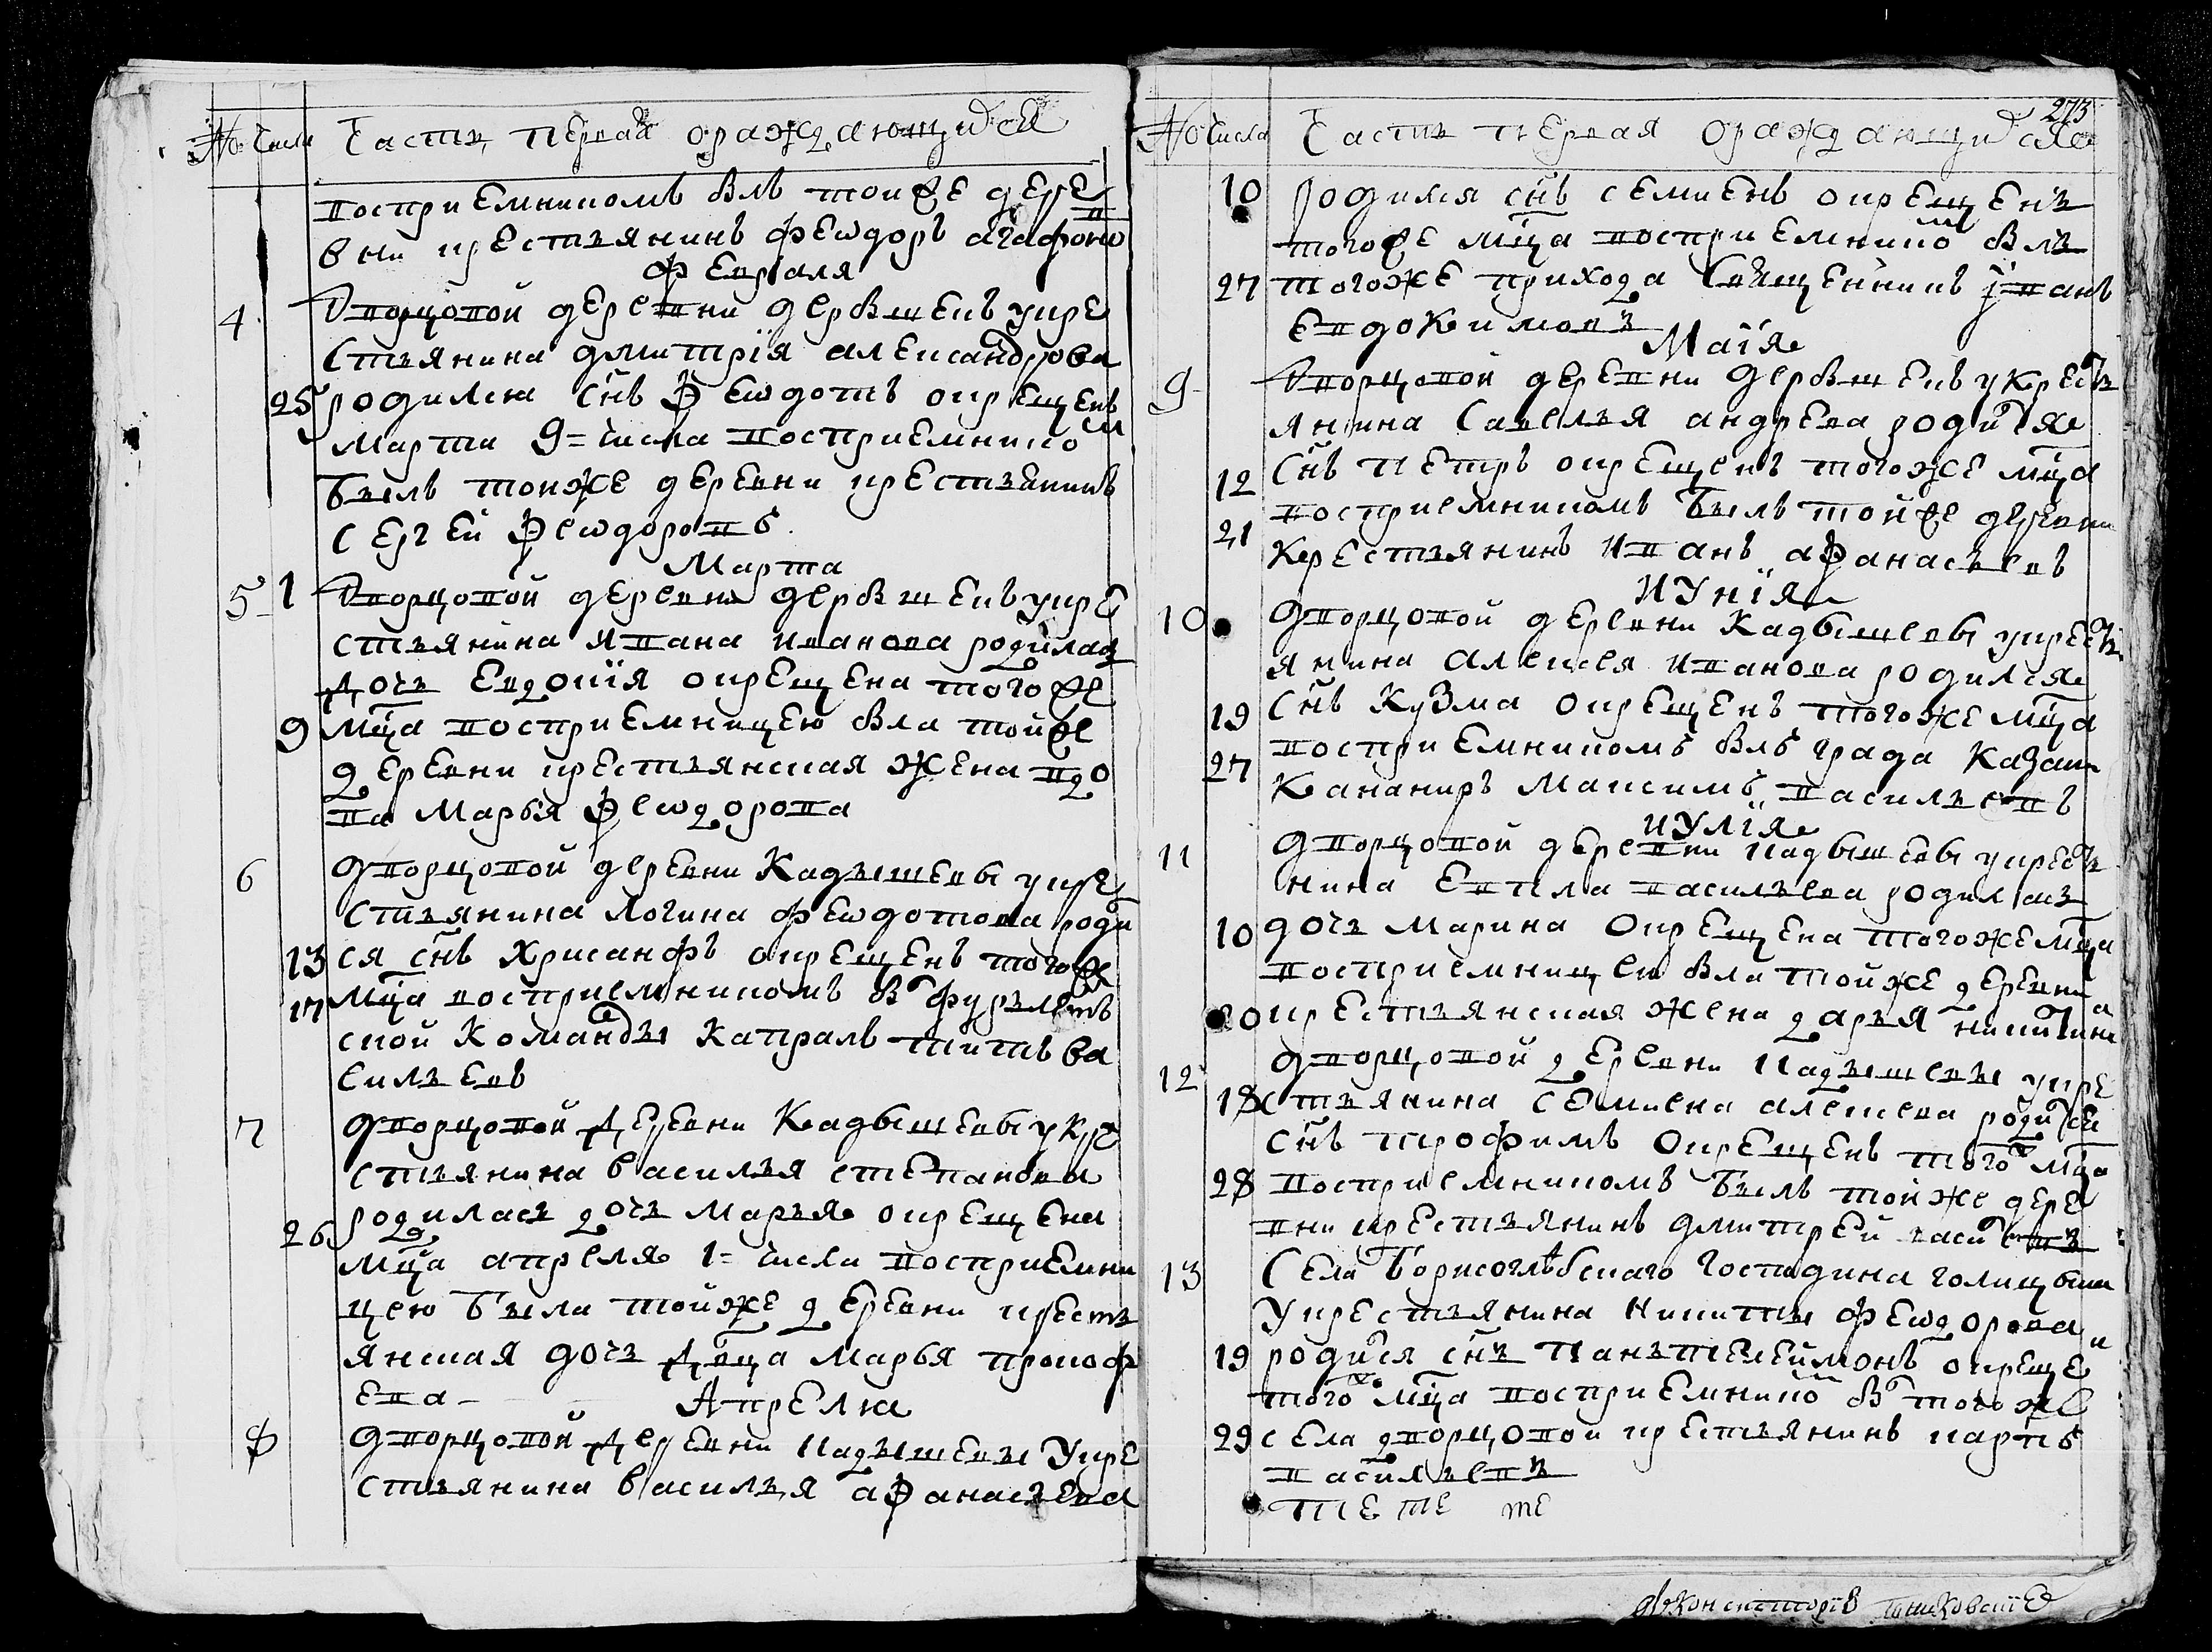 № Числа Часть первая ораждающихся
восприемникомъ былъ тойже дере
вни крестьянинъ феѡдоръ агафоно
Февраля
4 Дворцовой деревни дербышекъ укре
стьянина дмитрїя александрова
25 родился снъ Феѡдотъ окрещенъ
марта 9= числа восприемнико м
былъ тоиже деревни крестьянинъ
сергей Феѡдоровъ
Марта
5 1 Дворцовой деревни дербышекъ укре
стьянина ивана иванова родилас
дочь Евдокїя окрещена тогоже
9 мца восприемницею была тойже
деревни крестьянская жена вдо
ва Марья Феѡдорова
6 Дворцовой деревни Кадышевы укре
стьянина логина феѡдотова роди
13 ся снъ хрисанфъ окрещенъ тогоже
17 мца восприемникомъ бы фурлет
ской команды капралъ титъ ва
сильевъ
7 Дворцовой деревни Кадышевы укре
стьянина василья степанова
26 родилась дочь марья окрещена
мца апреля 1= числа восприемни
цею была тойже деревни крестъ
янская дочь двца марья прокоф
ева - Апреля
8 Дворцовой деревни кадышевы укре
стьянина василья афанасьева
273
№ Числа Часть первая ораждающихся
10 родился снъ семиенъ окрещенъ
тогоже мца восприемнико м былъ
27 тогоже прихода священникъ їванъ
Евдокимовъ
Маїя
9 Дворцовой деревни дербышекъ укресть
янина савелья андреева родился
12 снъ петръ окрещенъ тогоже мца
восприемникомъ былъ тойже деревни
21 крестьянинъ иванъ афанасьевъ
иунїя
10 Дворцовой деревни Кадышевы укресть
янина алексея иванова родился
19 снъ кузма окрещенъ тогоже мца
восприемникомъ былъ града казани
27 кананиръ максимъ васильевъ
иулїя
11 Дворцовой деревни кадышевы укресть
нина Евтла васильева родилась
10 дочь марина окрещена тогоже мца
восприемницею была тойже деревни
20 крестьянская жена дарья никитина
12 Дворцовой деревни кадышевы укре
18 стьянина семиена алексеева родился
снъ трофимъ окрещенъ того ж мца
28 восприемникомъ былъ тойже дере
вни крестьянинъ дмитрей васильевъ
13 Села Борисоглѣбскаго господина голицына
укрестьянина никиты феѡдорова
19 родился снъ пантелеймонъ окреще н
того ж мца восприемнико м бы тогоже
29 села дворцовои крестьянинъ карпъ
васильевъ
те те те